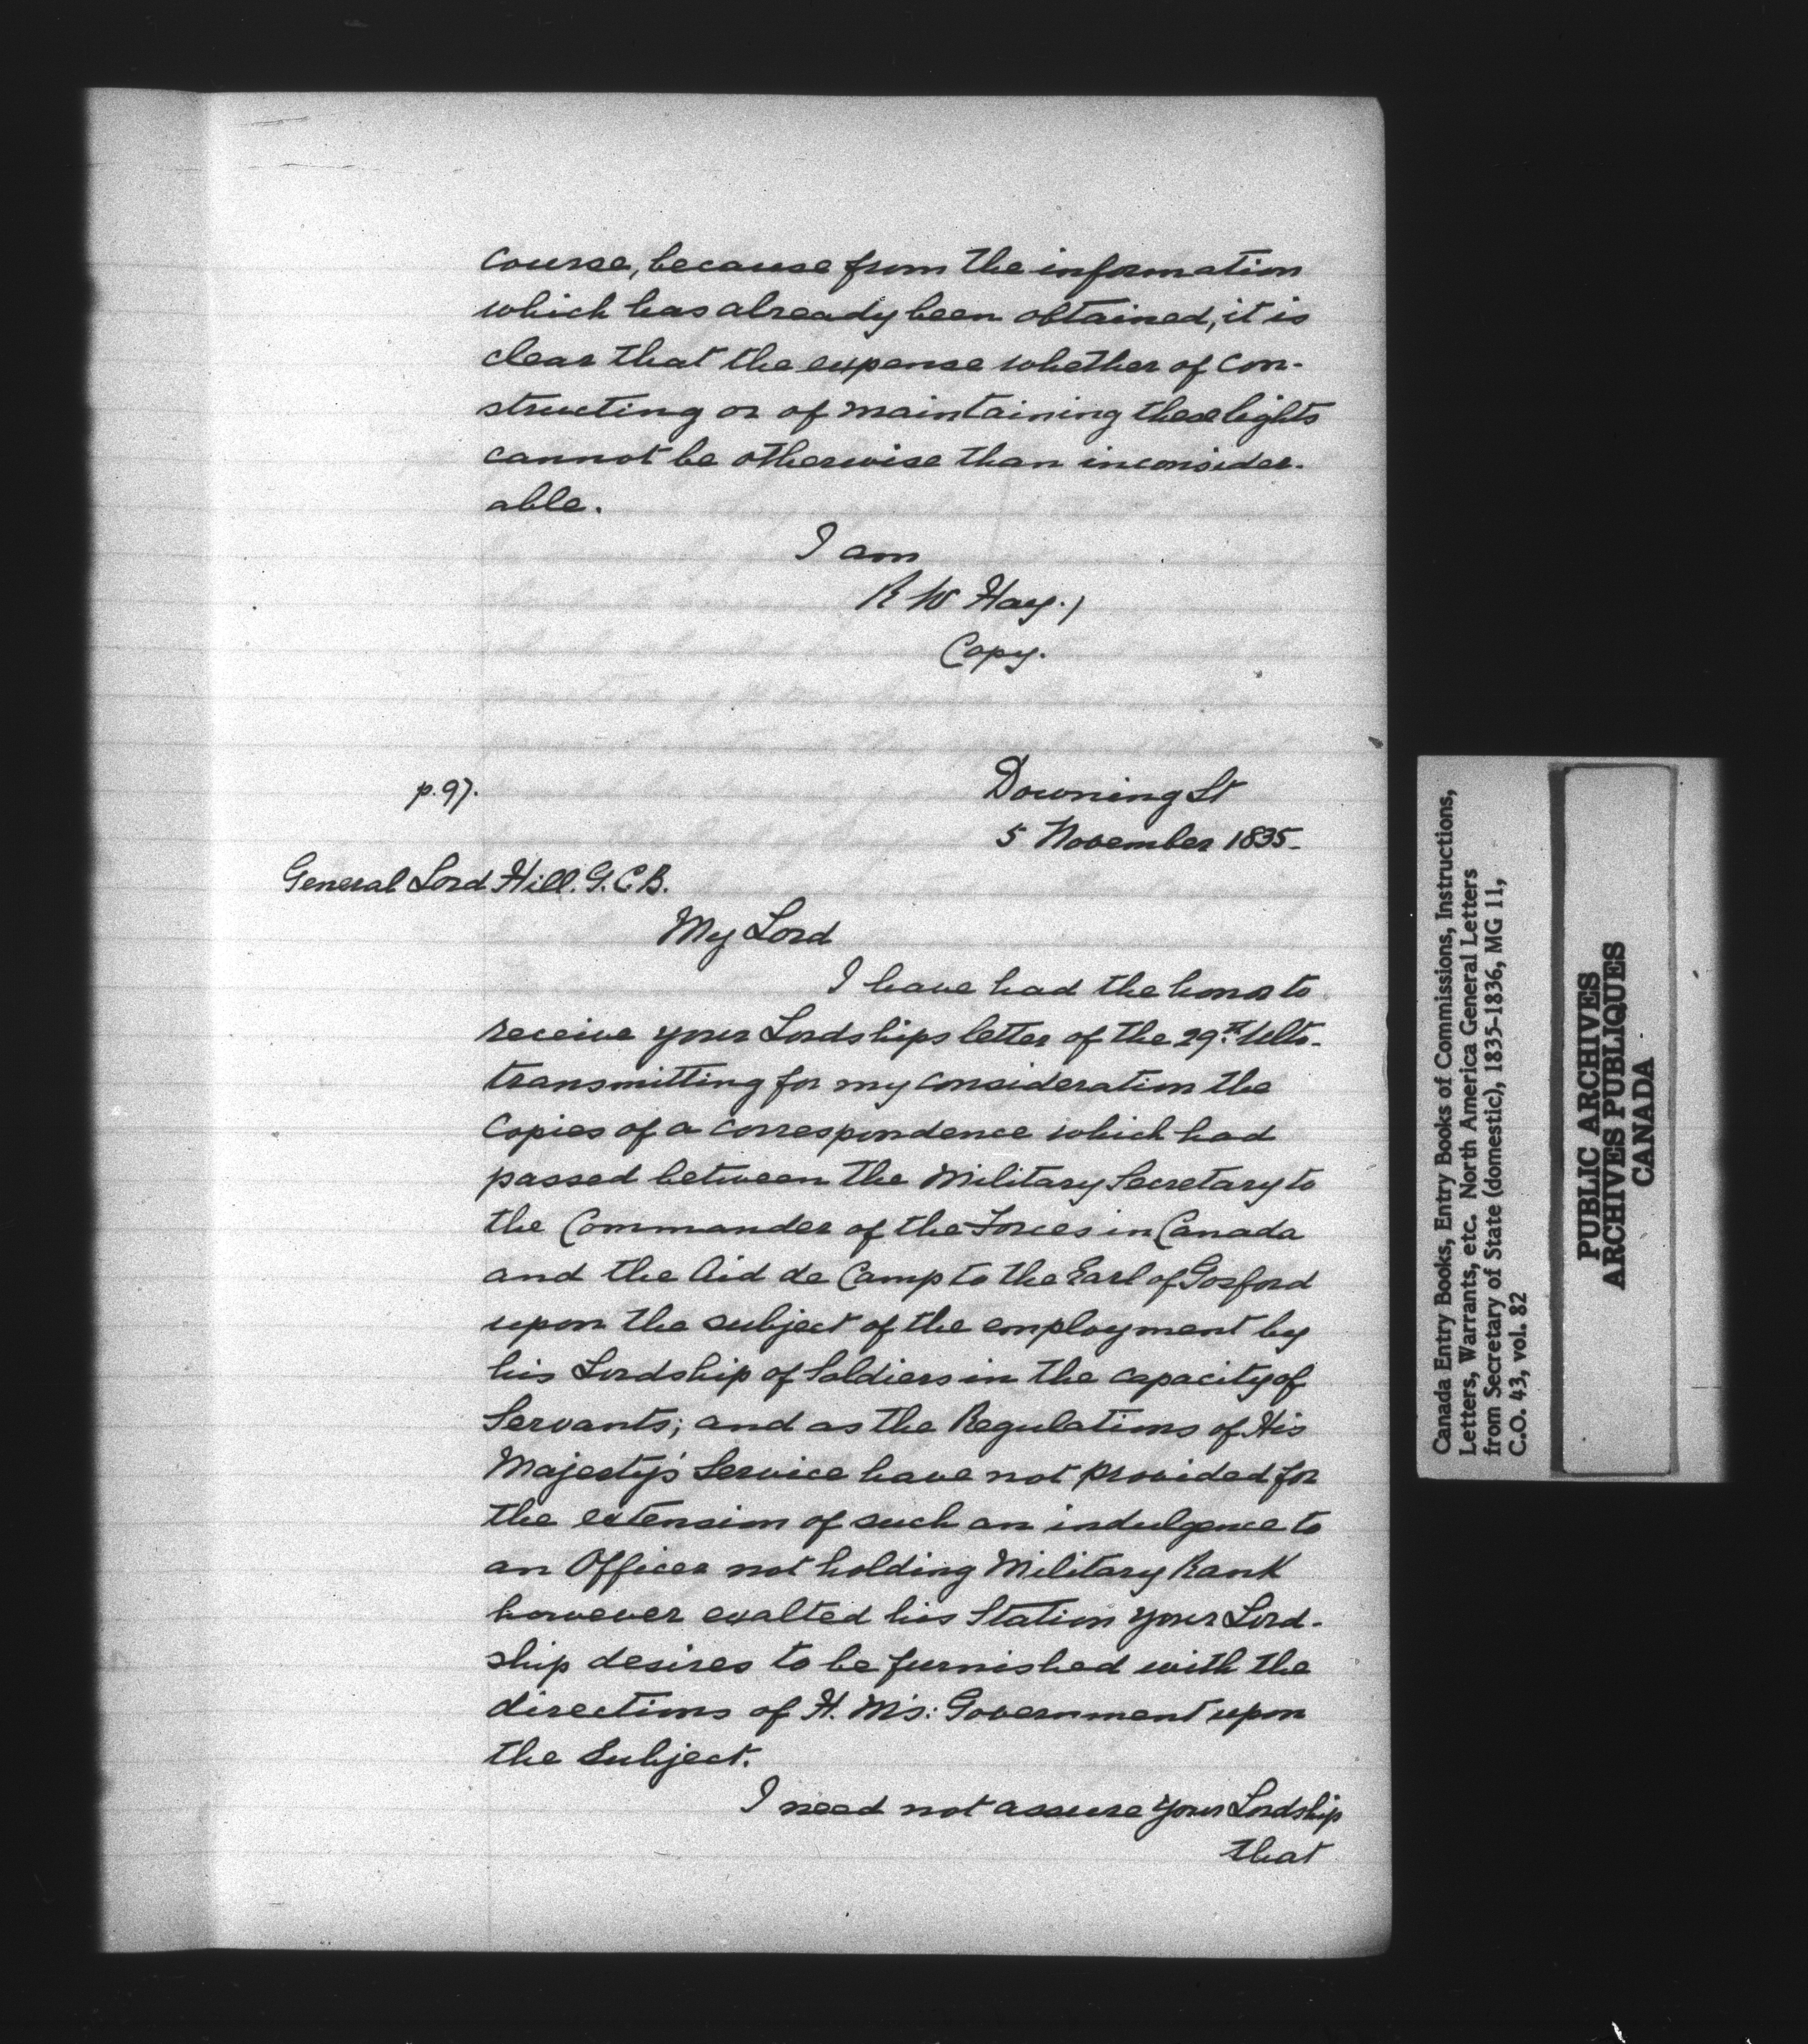 course, because from the information
which has already been obtained, it is
clear that the expense whether of con-
structing or of maintaining these lights
cannot be otherwise than inconsider-
able.
I am
R W Hay.)
Copy.
p. 97.
Downing St
5 November 1835.
General Lord Hill. G.C.B.
My Lord
I have had the honor to
receive your Lordships letter of the 29th. Ulto.
transmitting for my consideration the
Copies of a correspondence which had
passed between the Military Secretary to
the Commander of the Forces in Canada
and the Aid de Camp to the Earl of Gosford
upon the subject of the employment by
his Lordship of Soldiers in the capacity of
Servants; and as the Regulations of His
Majesty's Service have not provided for
the extension of such an indulgence to
an Officer not holding Military Rank
however exalted his Station your Lord-
ship desires to be furnished with the
directions of H. M's: Government upon
the Subject.
I need not assure your Lordship
that
Canada Entry Books, Entry Books of Commissions, Instructions,
Letters, Warrants, etc. North America General Letters
from Secretary of State (domestic), 1835-1836, MG 11,
C.O. 43, vol. 82
PUBLIC ARCHIVES
ARCHIVES PUBLIQUES
CANADA